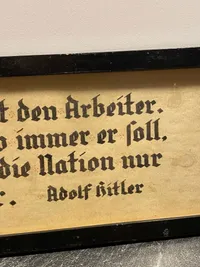 t den Arbeiter.
o immer er ſoll.
die Nation nur
r.
Adolf Hitler